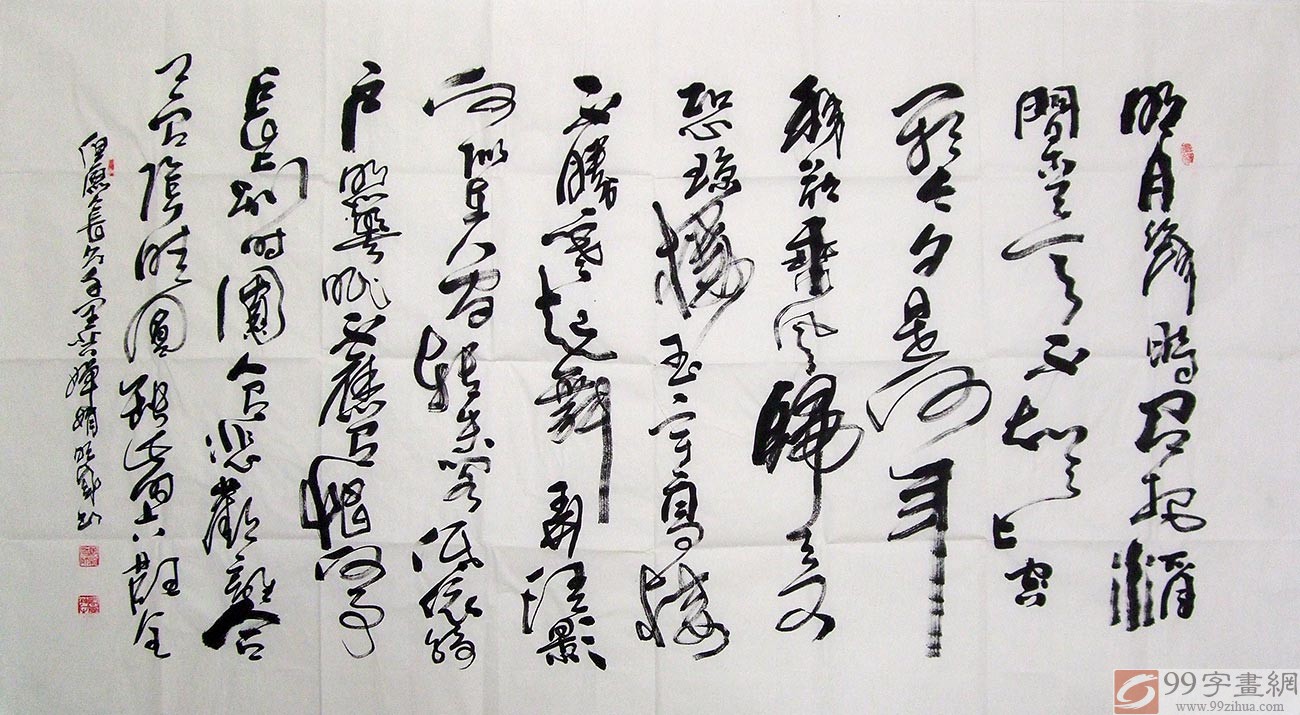 明月幾時有把酒
問青天不知天上宫
闕今夕是何年
我欲乘風歸去又
恐瓊樓玉宇高處
不勝寒起舞弄清影
何似在人間轉朱閣低綺
户照無眠不應有恨何事
長向别時圓人有悲歡離合
月有陰晴圓缺此事古難全
但願人長久千里共嬋娟
99字畫網
www.99zihua.com